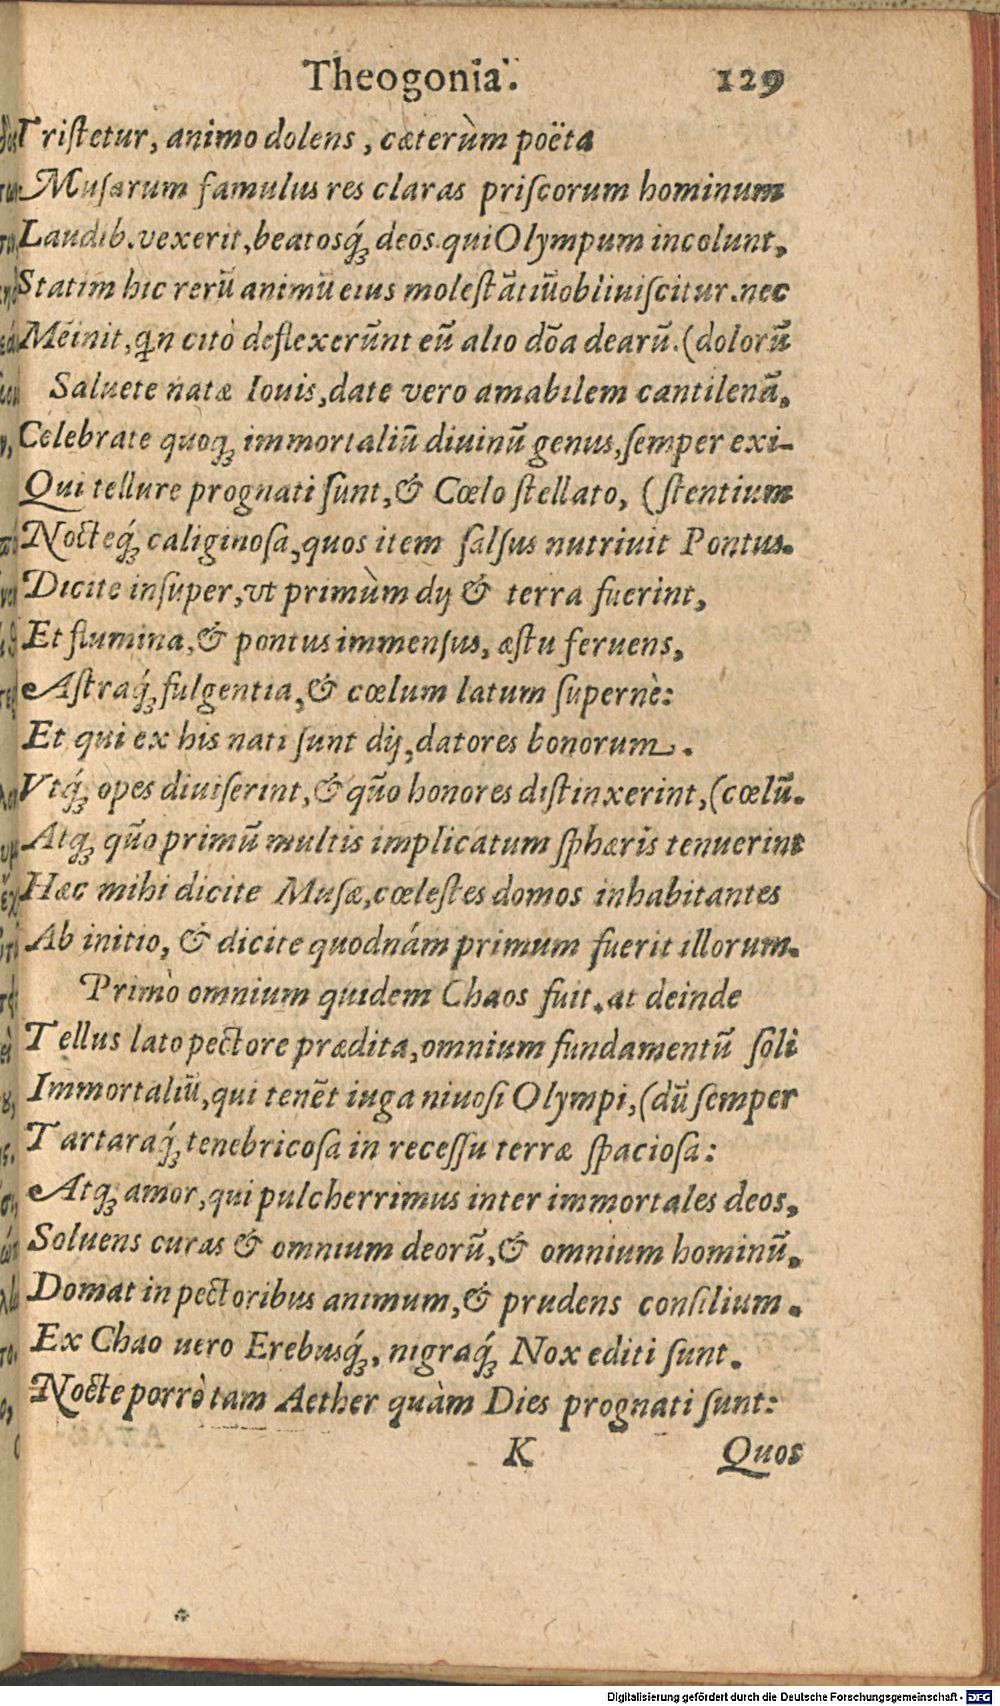 Theogonia. 129
Triſtetur, animo dolens, cæterùm poëta
Muſarum famulus res claras priſcorum hominum
Laudib. vexerit, beatosq́; deos qui Olympum incolunt,
Statim hic rerū animū eius moleſtātiū obliuiſcitur. nec
Mēinit, qn citò deflexerūnt eū alio dōa dearū. (dolorū
Saluete natæ Iouis, date vero amabilem cantilenā,
Celebrate quoq; immortaliū diuinū genus, ſemper exi-
Qui tellure prognati ſunt, & Cœlo ſtellato, (ſtentium
Nocteq́; caliginoſa, quos item ſalſus nutriuit Pontus.
Dicite inſuper, vt primùm dij & terra fuerint,
Et flumina, & pontus immenſus, æſtu feruens,
Aſtraq́; fulgentia, & cœlum latum ſupernè:
Et qui ex his nati ſunt dij, datores bonorum.
Vtq́; opes diuiſerint, & quō honores diſtinxerint, (cœlū.
Atq; quō primū multis implicatum ſphæris tenuerint
Hæc mihi dicite Muſæ, cœleſtes domos inhabitantes
Ab initio, & dicite quodnám primum fuerit illorum.
Primò omnium quidem Chaos fuit. at deinde
Tellus lato pectore prædita, omnium fundamentū ſoli
Immortaliū, qui tenēt iuga niuoſi Olympi, (dū ſemper
Tartaraq́; tenebricoſa in receſſu terræ ſpacioſa:
Atq; amor, qui pulcherrimus inter immortales deos,
Soluens curas & omnium deorū, & omnium hominū,
Domat in pectoribus animum, & prudens conſilium.
Ex Chao uero Erebusq́;, nigraq́; Nox editi ſunt.
Nocte porrò tam Aether quàm Dies prognati ſunt:
K Quos
Digitalisierung gefördert durch die Deutsche Forschungsgemeinschaft - DFG